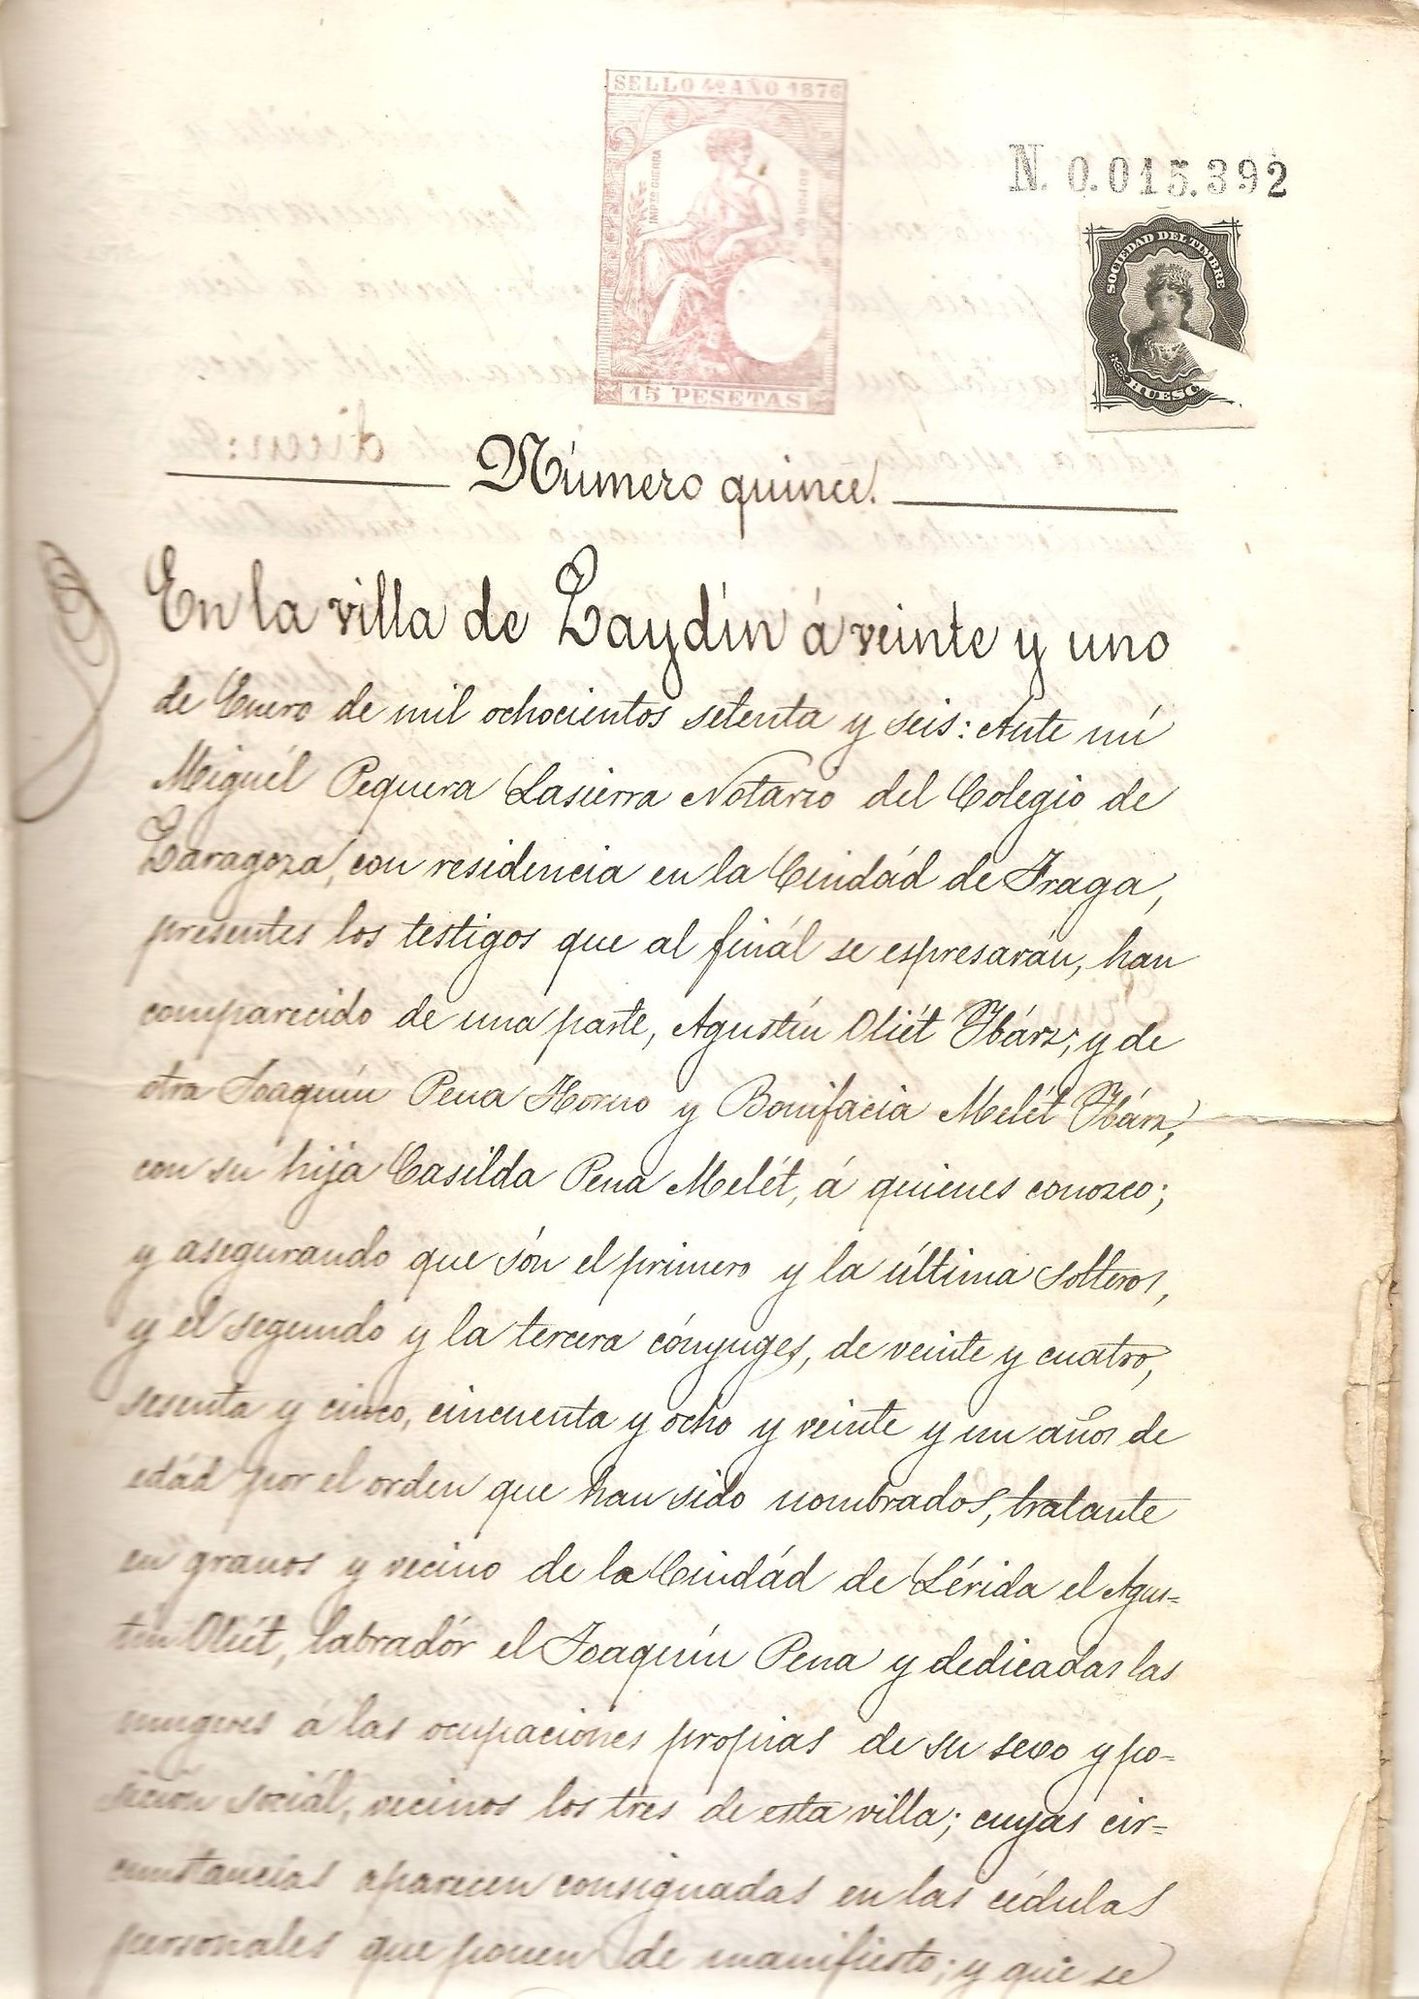 SELLO 4º AÑO 1876
IMPTO GUERRA
15 PESETAS
N. 0.015.392
SOCIEDAD DEL TIMBRE
HUESC
Número quince.
En la villa de Zaydín á veinte y uno
de Enero de mil ochocientos setenta y seis: Ante mí
Miguél Pequera Lasierra Notario del Colegio de
Zaragoza, con residencia en la Ciudád de Fraga,
presentes los testigos que al finál se espresarán, han
comparecido de una parte, Agustín Oliét Ybárz; y de
otra Joaquín Pena Horno y Bonifacia Melét Ybárz,
con su hija Casilda Pena Melét, á quienes conozco;
y asegurando que són el primero y la última solteros,
y el segundo y la tercera cónyuges, de veinte y cuatro,
sesenta y cinco, cincuenta y ocho y veinte y un años de
edád por el orden que han sido nombrados, tratante
en granos y vecino de la Ciudád de Lérida el Agus=
tín Oliét, labradór el Joaquín Pena y dedicadas las
mugeres á las ocupaciones propias de su sexo y po=
sición sociál, vecinos los tres de esta villa; cuyas cir=
cunstancias aparecen consignadas en las cédulas
personales que ponen de manifiesto; y que se